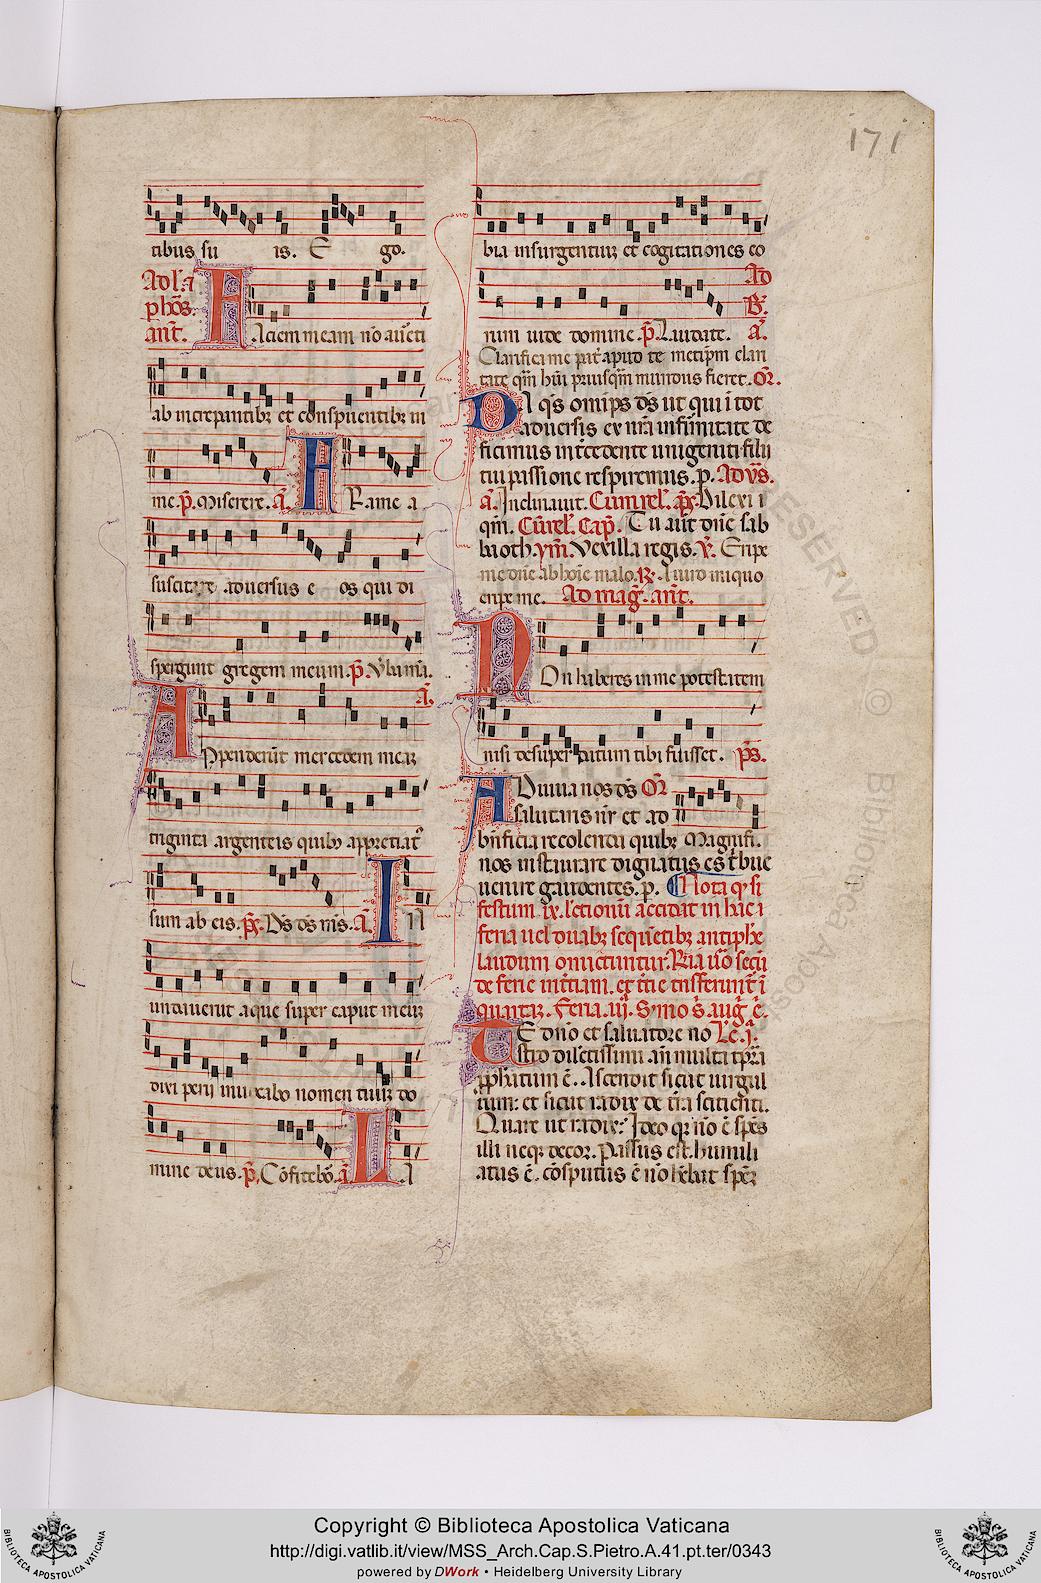 171
tibus su is. E go.
Ad l'a
phos.
ant. Faciem meam nō av̄ti
ab increpantibꝫ et conspuentibꝫ in
me. p̄. Miserere. ā. Framea
suscitare adversus e os qui di
spergunt gregem meum. p̄. Verba m̄a.
ā.
Appenderūt mercedem meaꝫ
triginta argenteis quibꝫ appretiatꝰ
sum ab eis. p̄. Ds ds ms. ā. In
undaverūt aque super caput meuꝫ
dixi perii invocabo nomen tuuꝫ do
mine deus. p̄. Cōfitebor. ā. La
bia insurgentiuꝫ et cogitationes eo
Ad
rum vide domine. p̄. Laudate. B̄. ā.
Clarifica me pat̄ apud te metip̄m clari
tate q̄m hui priusq̄m mundus fieret. Or̄.
Da q̄s om̄ps ds ut qui ī tot
adversis ex nr̄a infirmitate de
ficimus int̄cedente unigeniti filii
tui passione respiremus. p. Ad vs̄.
ā. Inclinavit. p̄s. Dilexi
qm̄. Cap̄. Tu aut dn̄e sab
baoth. ym̄. Vexilla regis. v̄. Eripe
me dn̄e ab hoīe malo. R̄. A viro iniquo
eripe me. Ad maḡ. ant̄.
Non haberes in me potestatem
nisi desuper datum tibi fuisset. p̄s.
Adiuva nos ds Or̄
salutaris nr̄ et ad
bn̄ficia recolenda quibꝫ Magnifi.
nos instaurare dignatus es t̄bue
venire gaudentes. p. Nota qꝫ si
festum ix. lectionū accidat in hac
feria vel duabꝫ sequētibꝫ antiphe
laudum omictuntur.
quartaꝫ. Feria iij. S̄mo s̄. auḡ. e.
De dn̄o et salvatore no Lc̄. j.
stro dilectissimi an̄ multa tp̄ra
p̄phatum ē. Ascendit sicut virgul
tum: et sicut radix de t̄ra scitienti.
Quare ut radix? Ideo qꝫ nō ē spēs
illi neqꝫ decor. Passus est. humili
atus ē. cōsputus ē nō h̄ebat spēꝫ
RESERVED © Biblioteca Apostolica
Copyright © Biblioteca Apostolica Vaticana
http://digi.vatlib.it/view/MSS_Arch.Cap.S.Pietro.A.41.pt.ter/0343
powered by DWork • Heidelberg University Library
BIBLIOTECA APOSTOLICA VATICANA
BIBLIOTECA APOSTOLICA VATICANA